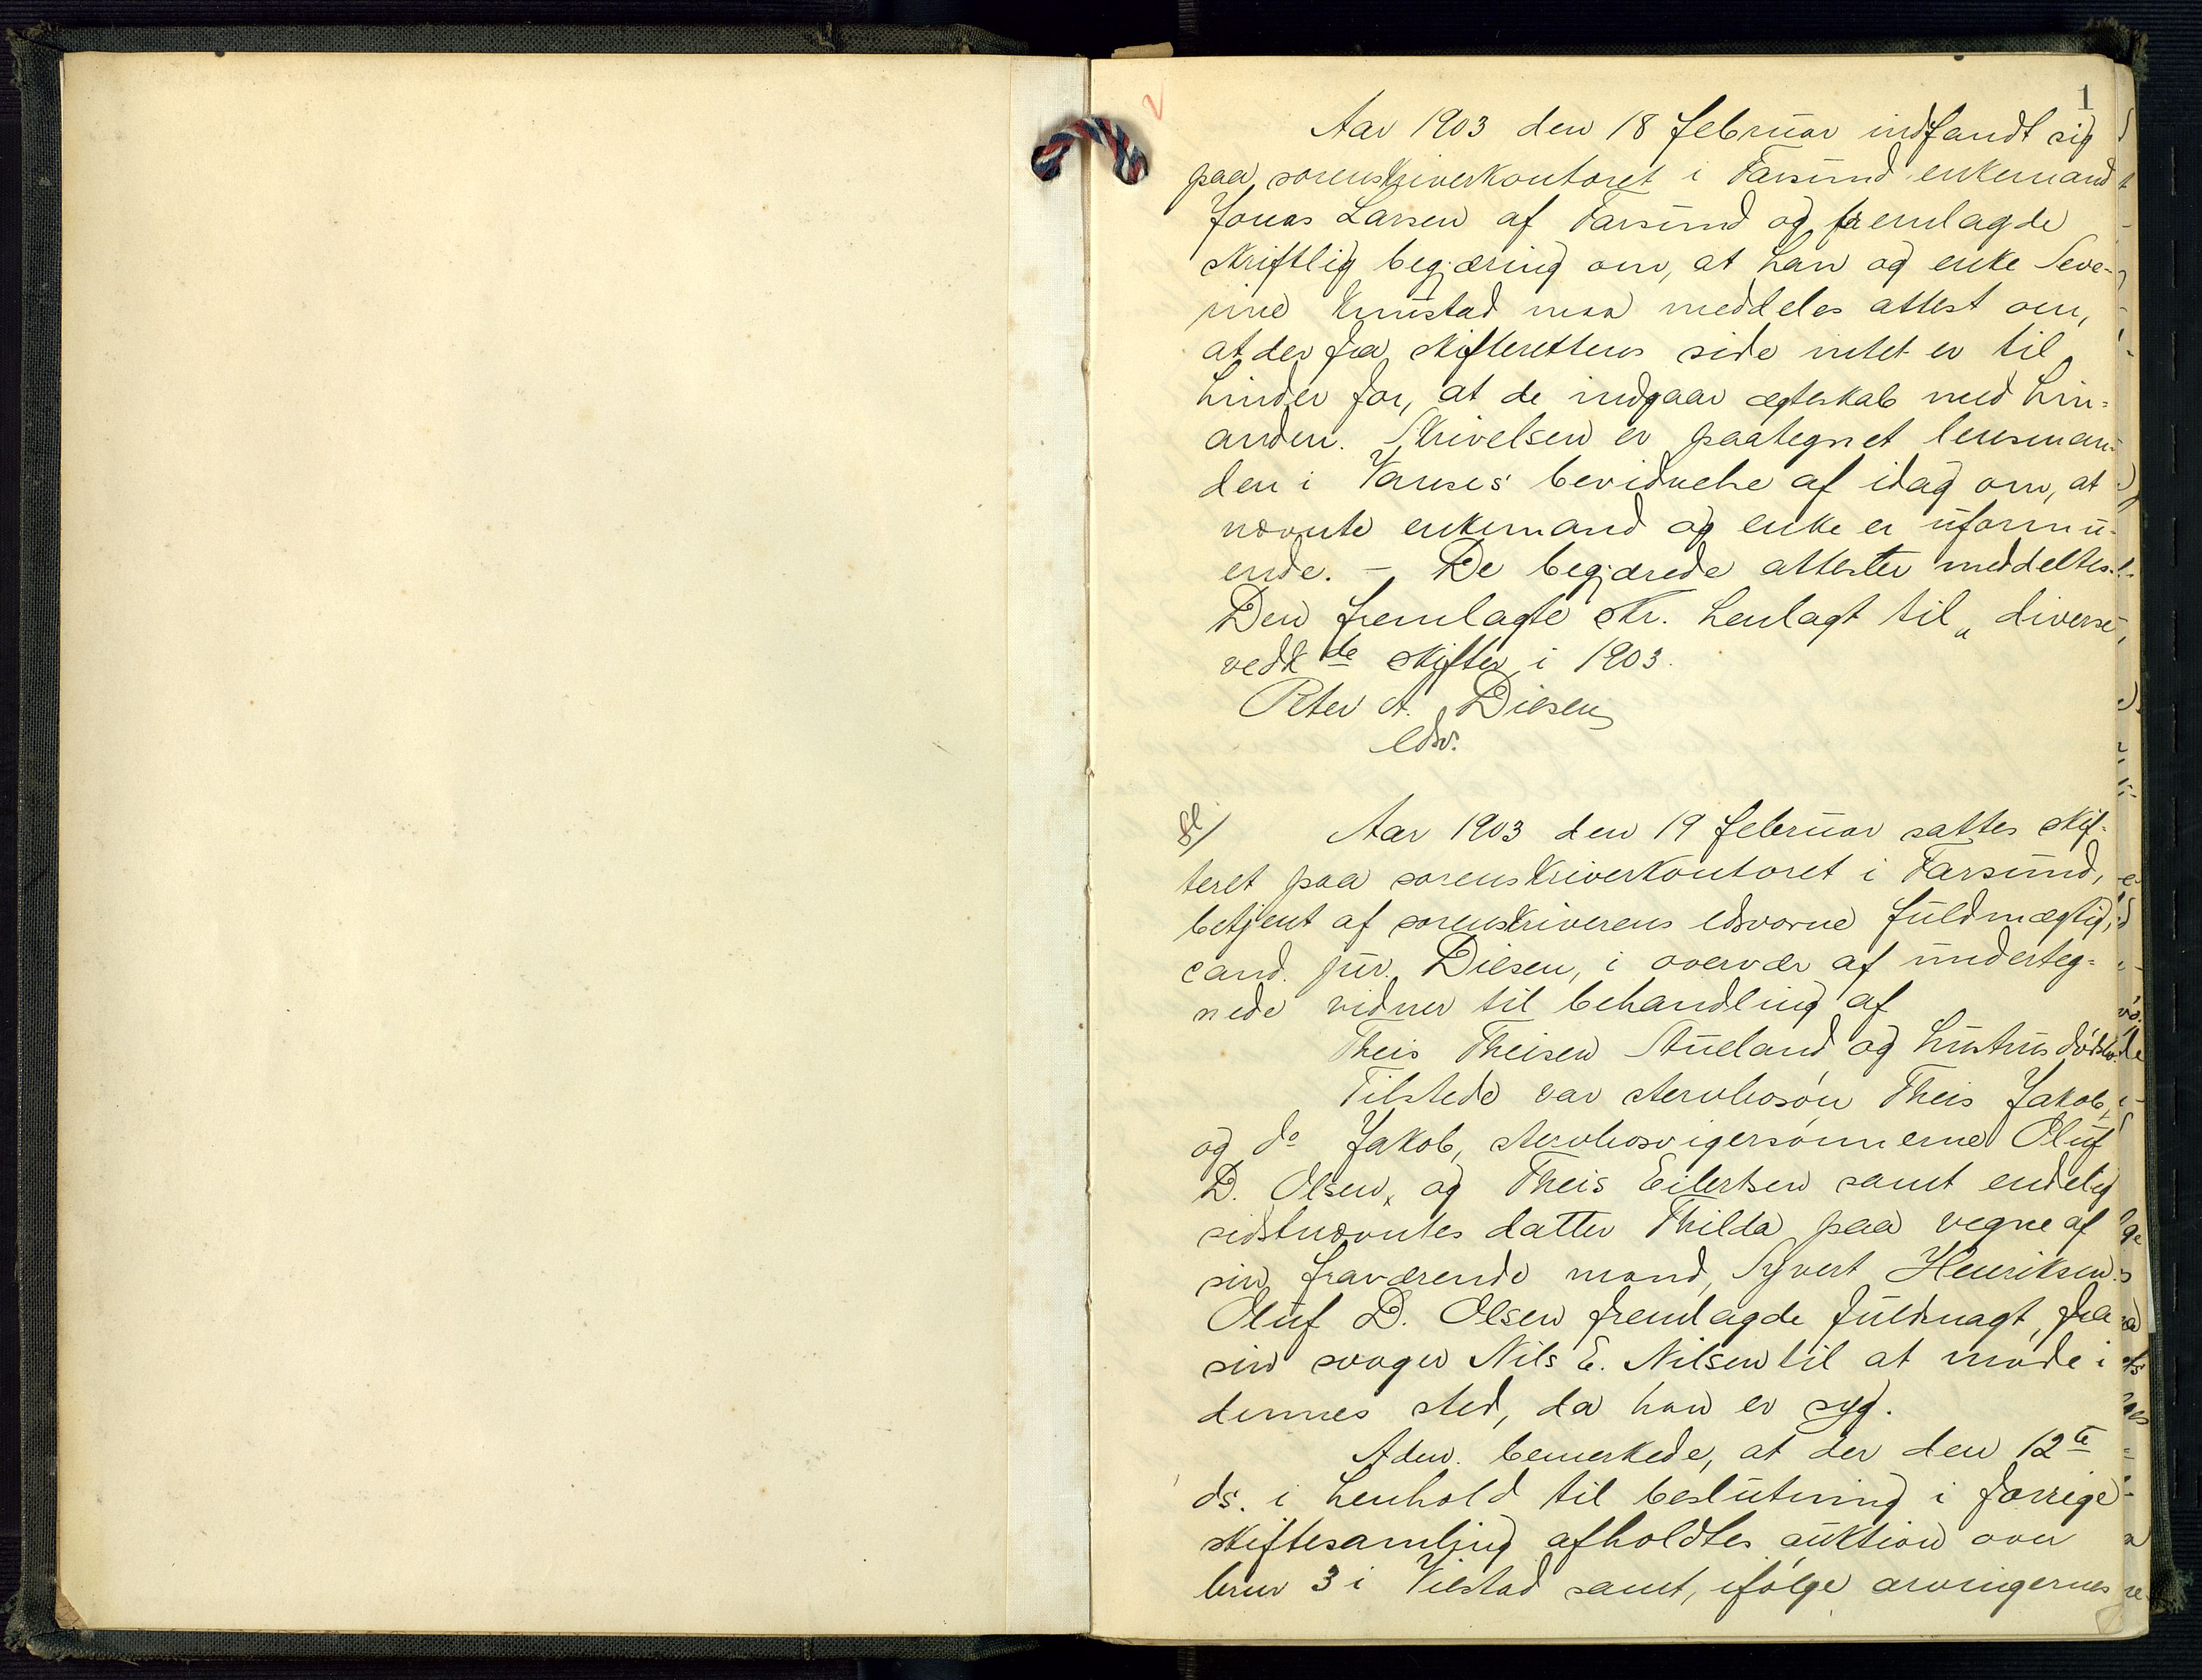 1
Aar 1903 den 18 februar indfandt sig
paa sorenskriverkontoret i Farsund enkemand
Jonas Larsen af Farsund og fremlagde
skriftlig begjæring om, at han og enke Seve-
rine Knustad maa meddeles attest om,
at der fra skifterettens side intet er til
hinder for, at de indgaar ægteskab med hin-
anden. Skrivelsen er paategnet lensman-
den i Vanses bevidnelse af idag om, at
nævnte enkemand og enke er uformu-
ende. – De begjærede attester meddeltes.
Den fremlagte skr. henlagt til „diverse
vedk de skifter i 1903.
Peter A. Diesen
edsv.
Aar 1903 den 19 februar sattes skif-
teret paa sorenskriverkontoret i Farsund,
betjent af sorenskriverens edsvorne fuldmægtig,
cand. jur. Diesen, i overvær af underteg-
nede vidner til behandling af
Theis Theisen Stueland og hustrus dødsbo.
Tilstede var stervbosøn Theis Jakob,
og do Jakob, stervbosvigersønnerne Oluf
D. Olsen, og Theis Eilertsen samt endelig
sidstnævntes datter Thilda paa vegne af
sin fraværende mand, Syvert Henriksen.
Oluf D. Olsen fremlagde fuldmagt, fra
sin svoger Nils E. Nilsen til at møde i
dennes sted, da han er syg.
Adm. bemerkede, at der den 12te
ds. i henhold til beslutning i forrige
skiftesamling afholdtes auktion over
brnr 3 i Vilstad samt, ifølge arvingernes